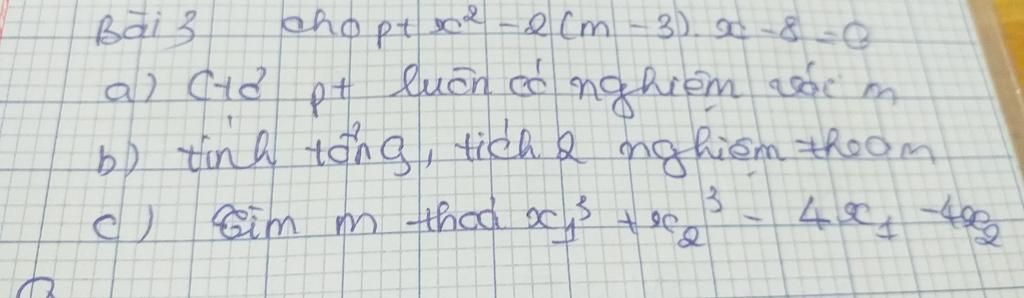 Bài 3 cho pt x² - 2(m - 3).x - 8 = 0
a) C+ỏ pt luôn có nghiệm với m
b) tính tổng, tích 2 nghiệm theo m
c) tìm m thoả x₁³ + x₂³ - 4x₁ - 4x₂